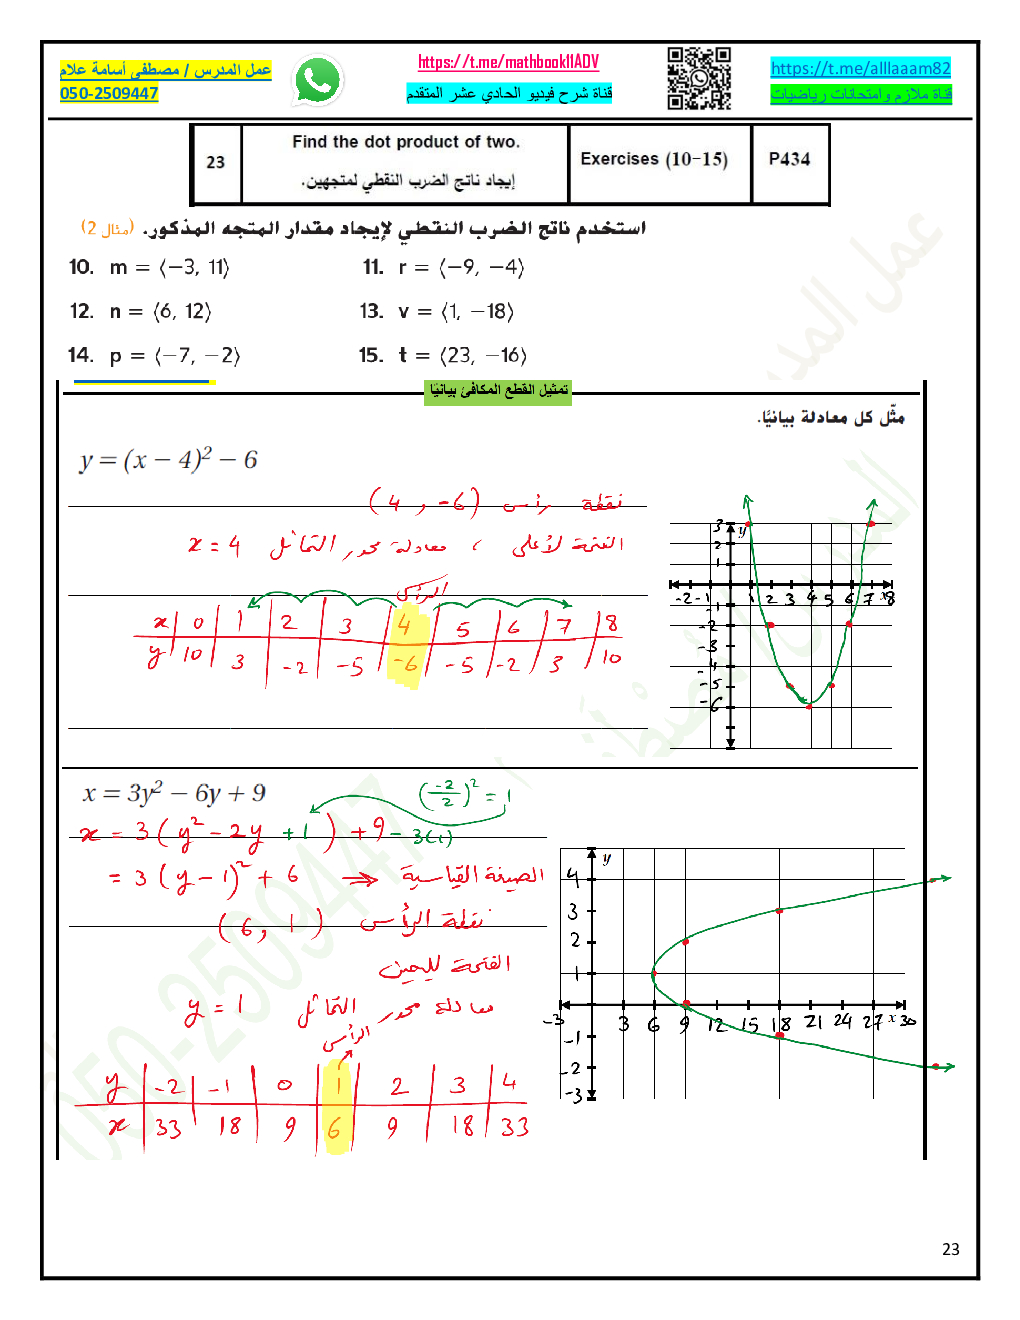 عمل المدرس / مصطفى أسامة علام
050-2509447
https://t.me/mathbook11ADV
قناة شرح فيديو الحادي عشر المتقدم
https://t.me/alllaaam82
قناة ملازم وامتحانات رياضيات
23
Find the dot product of two.
إيجاد ناتج الضرب النقطي لمتجهين.
Exercises (10-15)
P434
استخدم ناتج الضرب النقطي لإيجاد مقدار المتجه المذكور. (مثال 2)
10. m = ⟨−3, 11⟩ 11. r = ⟨−9, −4⟩
12. n = ⟨6, 12⟩ 13. v = ⟨1, −18⟩
14. p = ⟨−7, −2⟩ 15. t = ⟨23, −16⟩
تمثيل القطع المكافئ بيانيًا
مثّل كل معادلة بيانيًا.
y = (x − 4)² − 6
نقطة رأس (4 , -6)
الفتحة لأعلى ، معادلة محور التماثل x = 4
الرأس
x 0 1 2 3 4 5 6 7 8
y 10 3 -2 -5 -6 -5 -2 3 10
3 y
2
1
-2 -1 1 2 3 4 5 6 7 x 8
-1
-2
-3
-4
-5
-6
x = 3y² − 6y + 9
(-2/2)² = 1
x = 3(y² - 2y + 1) + 9 - 3(1)
= 3(y - 1)² + 6 ⇒ الصيغة القياسية
نقطة الرأس (6, 1)
الفتحة لليمين
معادلة محور التماثل y = 1
الرأس
y -2 -1 0 1 2 3 4
x 33 18 9 6 9 18 33
y
4
3
2
1
-3 3 6 9 12 15 18 21 24 27 x 30
-1
-2
-3
عمل المدرس / مصطفى
050-2509447
23